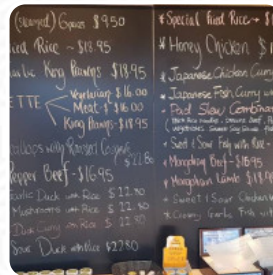 (steamed) 6pieces $9.50
Fried Rice ~ $18.95
Garlic King Prawns $18.95
Vegetarian $16.00
ETTE Meat-$ $16.00
King Prawns-$18.95
Scallops with
$22.80
Pepper Beef-$16.95
Garlic Duck with Rice $22.80
Mushrooms with Rice $22.80
Duck Curry with Rice $22.80
Sour Duck with Rice $22.80
* Special Fried Rice → $1
* Honey Chicken $
* Japanese Chicken Curry
* Japanese Fish Curry w
* Pad Siew Combina
(Thick Rice Noodles, Chicken, Beef,
vegetables,
* Sweet & Sour Fish with Rice -
* Mongolian Beef - $16.95
* Mongolian Lamb $18.9
* Sweet & Sour Chicken
* Creamy Garlic Fish wi